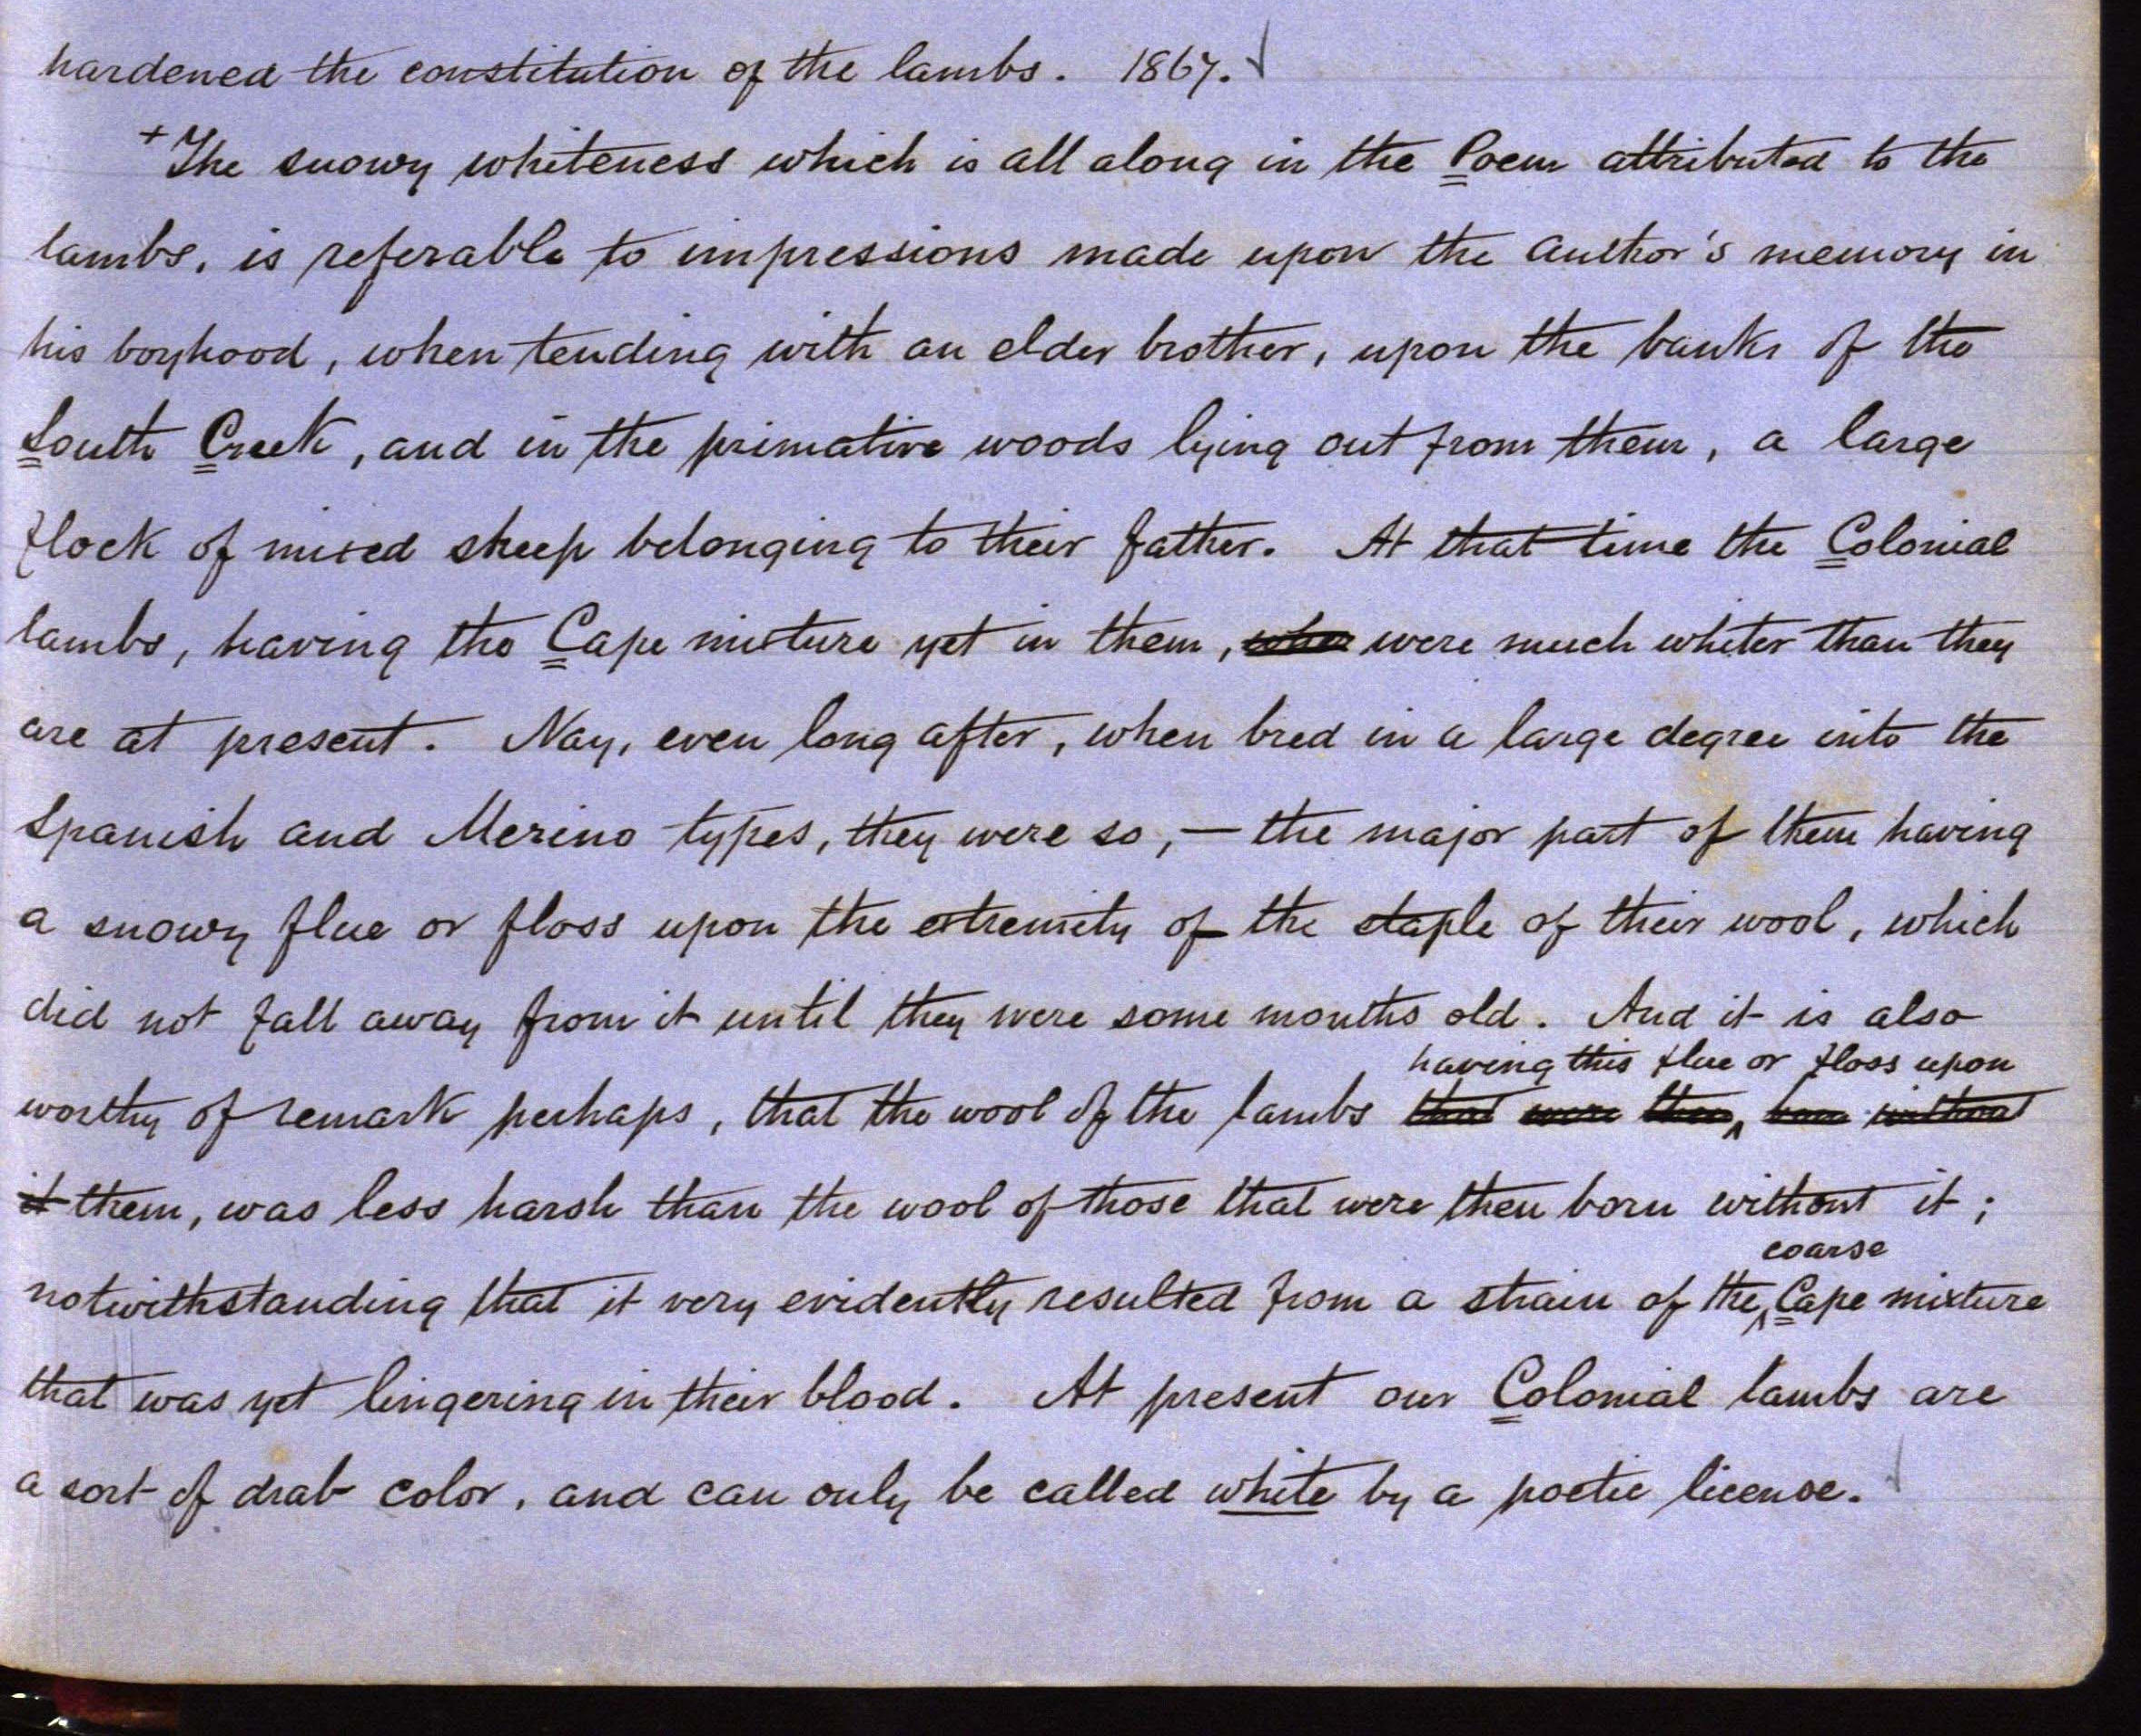 hardened the constitution of the lambs. 1867.
+ The snowy whiteness which is all along in the Poem attributed to the
lambs, is referable to impressions made upon the author's memory in
his boyhood, when tending with an elder brother, upon the banks of the
South Creek, and in the primative woods lying out from them, a large
flock of mixed sheep belonging to their father. At that time the Colonial
lambs, having the Cape mixture yet in them, were much whiter than they
are at present. Nay, even long after, when bred in a large degree into the
Spanish and Merino types, they were so, — the major part of them having
a snowy flue or floss upon the extremity of the staple of their wool, which
did not fall away from it until they were some months old. And it is also
having this flue or floss upon
worthy of remark perhaps, that the wool of the lambs that were then, born without
it them, was less harsh than the wool of those that were then born without it;
coarse
notwithstanding that it very evidently resulted from a strain of the Cape mixture
that was yet lingering in their blood. At present our Colonial lambs are
a sort of drab color, and can only be called white by a poetic license.